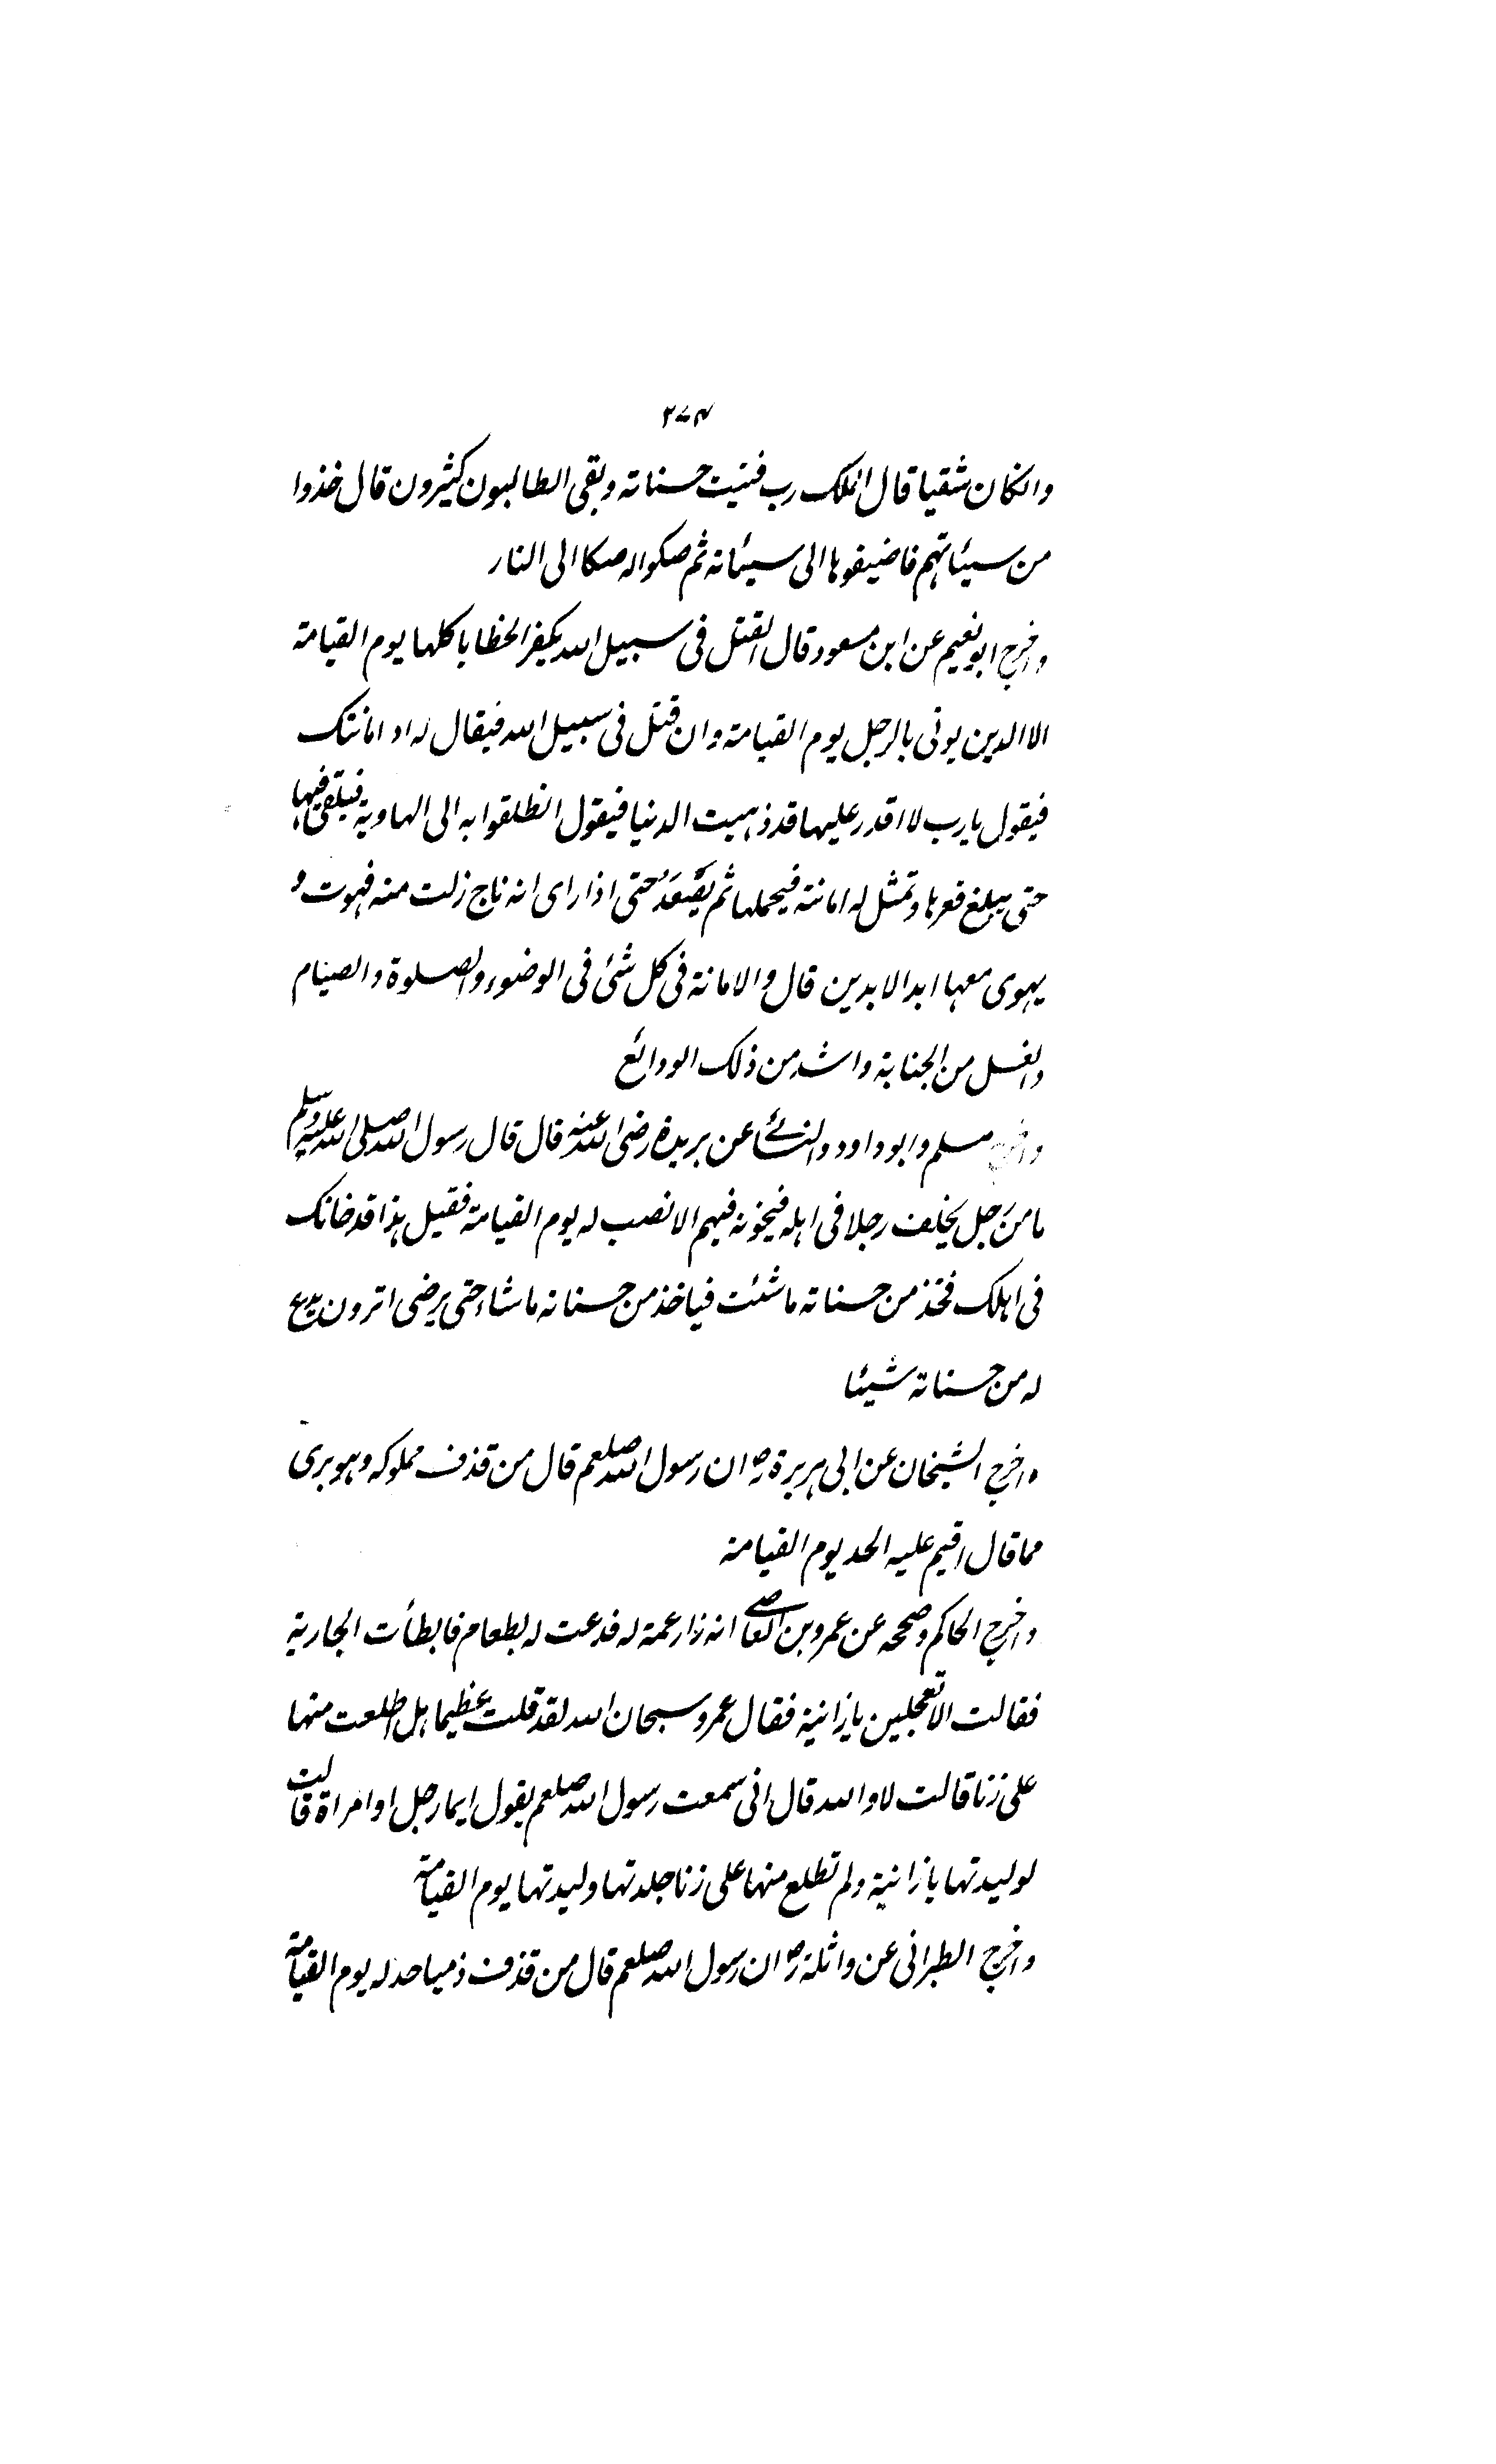 ۲۷۴
وانکان شقیا قال الملک رب فنیت حسناته وبقی الطالبون کثیرون قال خذوا
من سیئاتهم فاضیفوها الی سیئاته ثم صکوا له صکا الی النار
واخرج ابو نعیم عن ابن مسعود قال القتل فی سبیل الله یکفر الخطایا کلها یوم القیامة
الا الدین یوتی بالرجل یوم القیامة وان قتل فی سبیل الله فیقال له اد امانتک
فیقول یارب لا اقدر علیها قد ذهبت الدنیا فیقول انطلقوا به الی الهاویة فیلقی فیها
حتی یبلغ قعرها وتمثل له امانته فیحملها ثم یصعد حتی اذا رای انه ناج زلت منه فهوت و
یهوی معها ابد الابدین قال والامانة فی کل شئ فی الوضوء والصلوة والصیام
والغسل من الجنابة واشد من ذلک الودائع
واخرج مسلم وابو داود والنسائی عن بریدة رضی الله عنه قال قال رسول الله صلی الله علیه وسلم
ما من رجل یخلف رجلا فی اهله فیخونه فیهم الا نصب له یوم القیامة فقیل هذا قد خانک
فی اهلک فخذ من حسناته ما شئت فیاخذ من حسناته ما شاء حتی یرضی اترون یدع
له من حسناته شیئا
واخرج الشیخان عن ابی هریرة رض ان رسول الله صلعم قال من قذف مملوکه وهو بری
مما قال اقیم علیه الحد یوم القیامة
واخرج الحاکم وصححه عن عمرو بن العاصی انه زار عمة له فدعت له بطعام فابطأت الجاریة
فقالت الا تعجلین یا زانیة فقال عمرو سبحان الله لقد قلت عظیما هل اطلعت منها
علی زنا قالت لا والله قال انی سمعت رسول الله صلعم یقول ایما رجل او امراة قالت
لولیدتها یا زانیة ولم تطلع منها علی زنا جلدتها ولیدتها یوم القیامة
واخرج الطبرانی عن واثلة رض ان رسول الله صلعم قال من قذف ذمیا حد له یوم القیامة